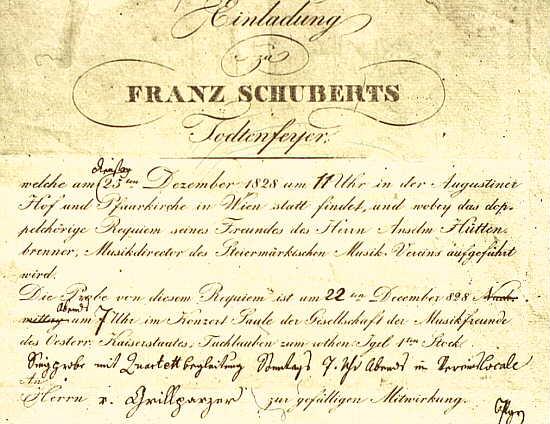 Einladung
zu
FRANZ SCHUBERTS
Todtenfeyer.
Dienstag
welche am 23ten Dezember 1828 um 11 Uhr in der Augustiner
Hof und Pfarrkirche in Wien statt findet, und wobey das dop-
pelchörige Requiem seines Freundes des Herrn Anselm Hütten-
brenner, Musikdirector des Steiermärkischen Musik-Vereins aufgeführt
wird.
Die Probe von diesem Requiem ist am 22ten December 828 Nach-
Abends
mittag um 7 Uhr im Konzert Saale der Gesellschaft der Musikfreunde
des Oesterr. Kaiserstaates, Tuchlauben zum rothen Igel 1ten Stock.
Singprobe mit Quartettbegleitung Sonntags 7 Uhr Abends im Vereinslocale
An
Herrn v. Grillparzer zur gefälligen Mitwirkung.